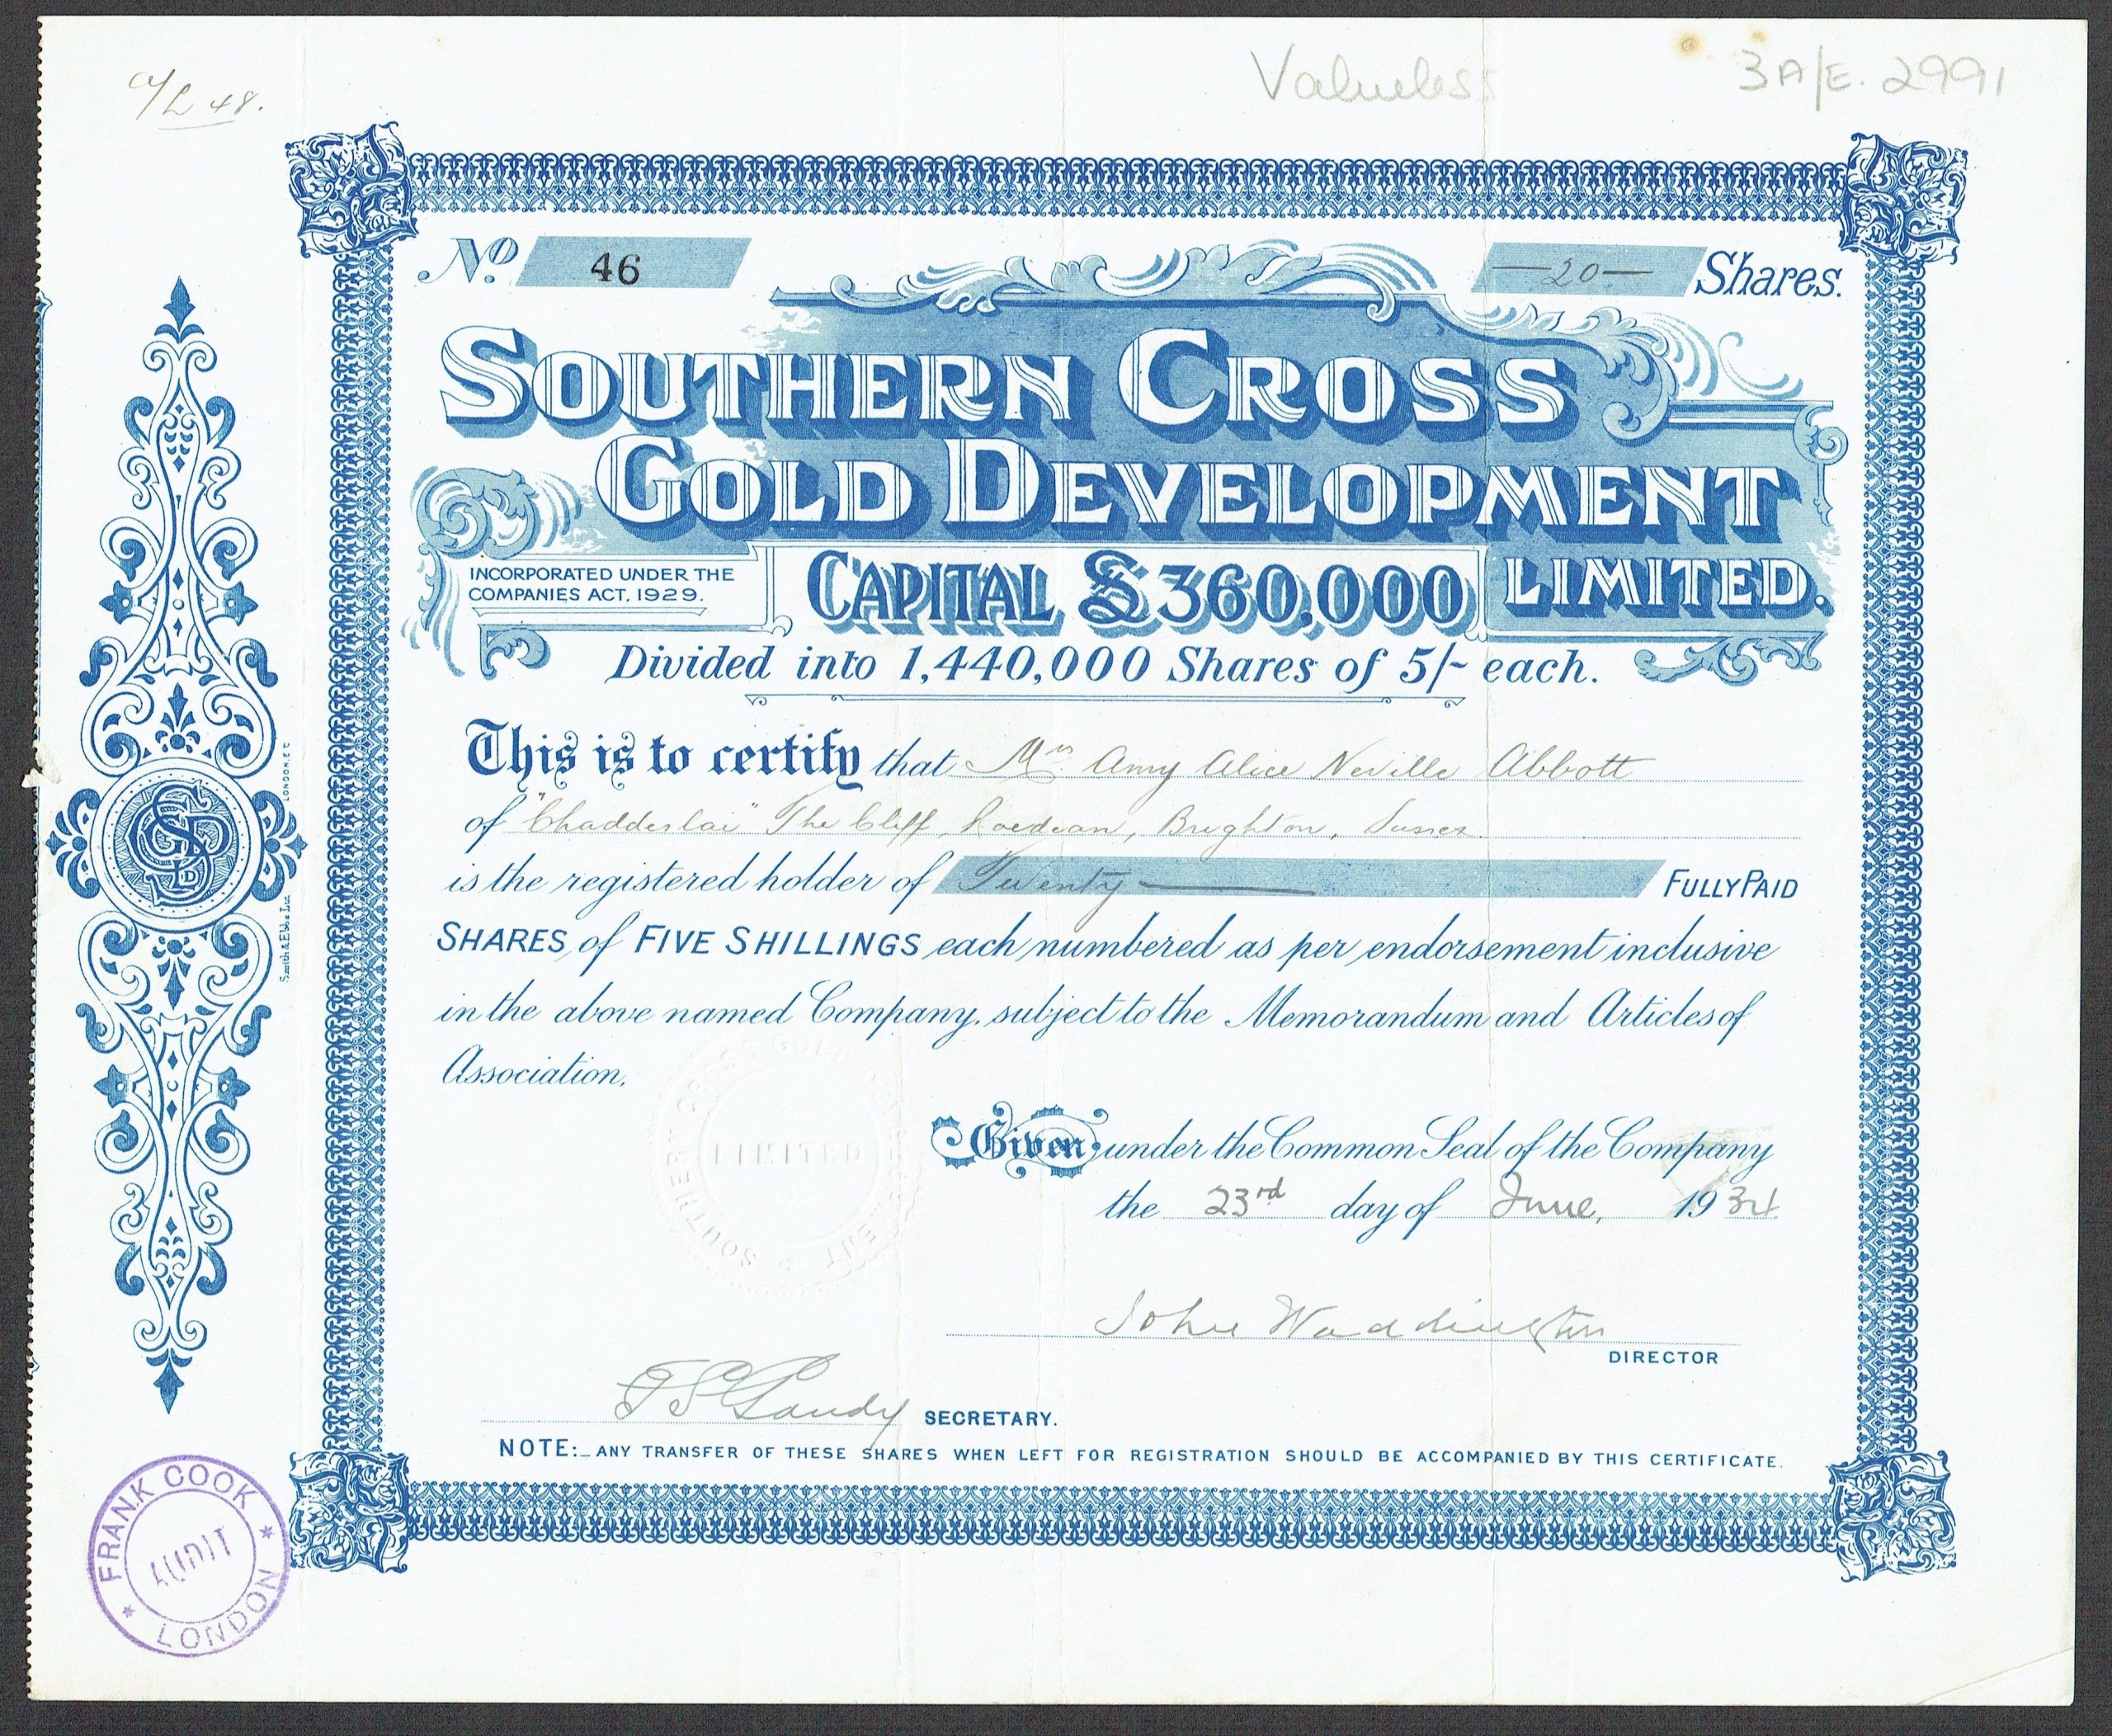 A/L 48.
Valueless
3A/E. 2991
No. 46
—20— Shares.
SOUTHERN CROSS
GOLD DEVELOPMENT
LIMITED.
INCORPORATED UNDER THE
COMPANIES ACT, 1929.
CAPITAL £360,000
Divided into 1,440,000 Shares of 5/- each.
This is to certify that Mrs Amy Alice Neville Abbott
of The Cliff, Roedean, Brighton, Sussex.
is the registered holder of Twenty FULLY PAID
SHARES of FIVE SHILLINGS each numbered as per endorsement inclusive
in the above named Company, subject to the Memorandum and Articles of
Association.
Given under the Common Seal of the Company
the 23rd day of June, 1934
John Waddington
DIRECTOR
SECRETARY.
NOTE:- ANY TRANSFER OF THESE SHARES WHEN LEFT FOR REGISTRATION SHOULD BE ACCOMPANIED BY THIS CERTIFICATE.
SOUTHERN CROSS GOLD DEVELOPMENT
LIMITED
Smith & Ebbs Ltd. LONDON, E.C.
FRANK COOK
AUDIT
LONDON